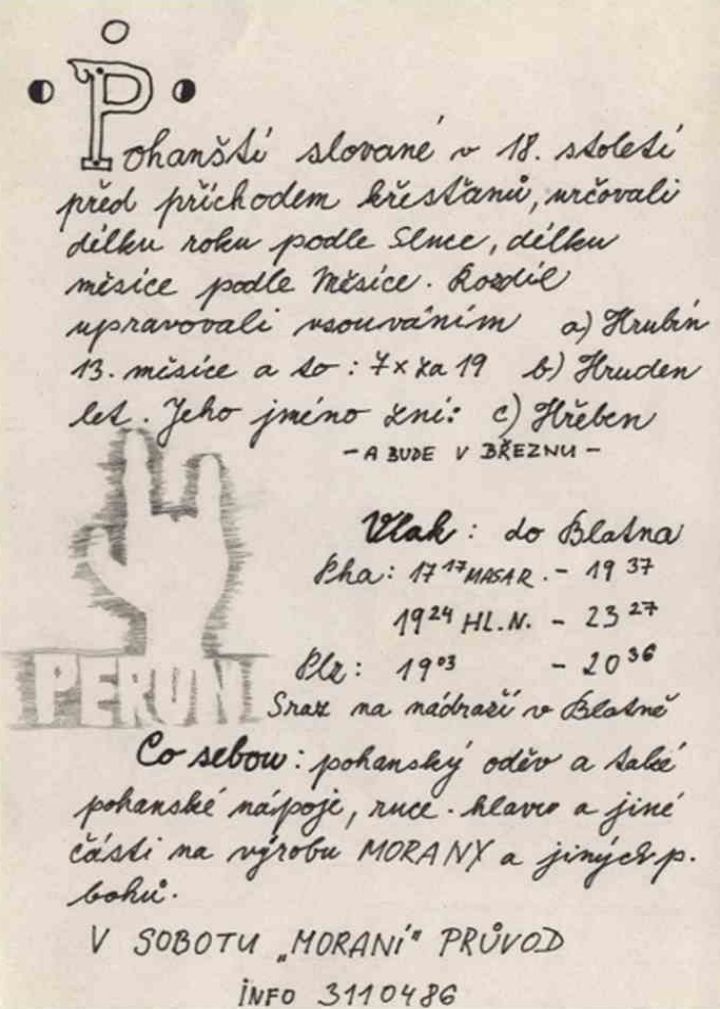 Pohanští slované v 18. století
před příchodem křesťanů, určovali
délku roku podle Slnce, délku
měsíce podle Měsíce. Rozdíl
upravovali vsouváním a) Hrubín
13. měsíce a to: 7x za 19 b) Hruden
let. Jeho jméno zní: c) Hřeben
- A BUDE V BŘEZNU -
Vlak: do Blatna
Pha: 17 17 MASAR. - 19 37
19 24 HL.N. - 23 27
Plz: 19 03 - 20 36
PERUN
Sraz na nádraží v Blatně
Co sebou: pohanský oděv a také
pohanské nápoje, ruce. hlavu a jiné
části na výrobu MORANY a jiných p.
bohů.
V SOBOTU „MORANÍ" PRŮVOD
INFO 3110486